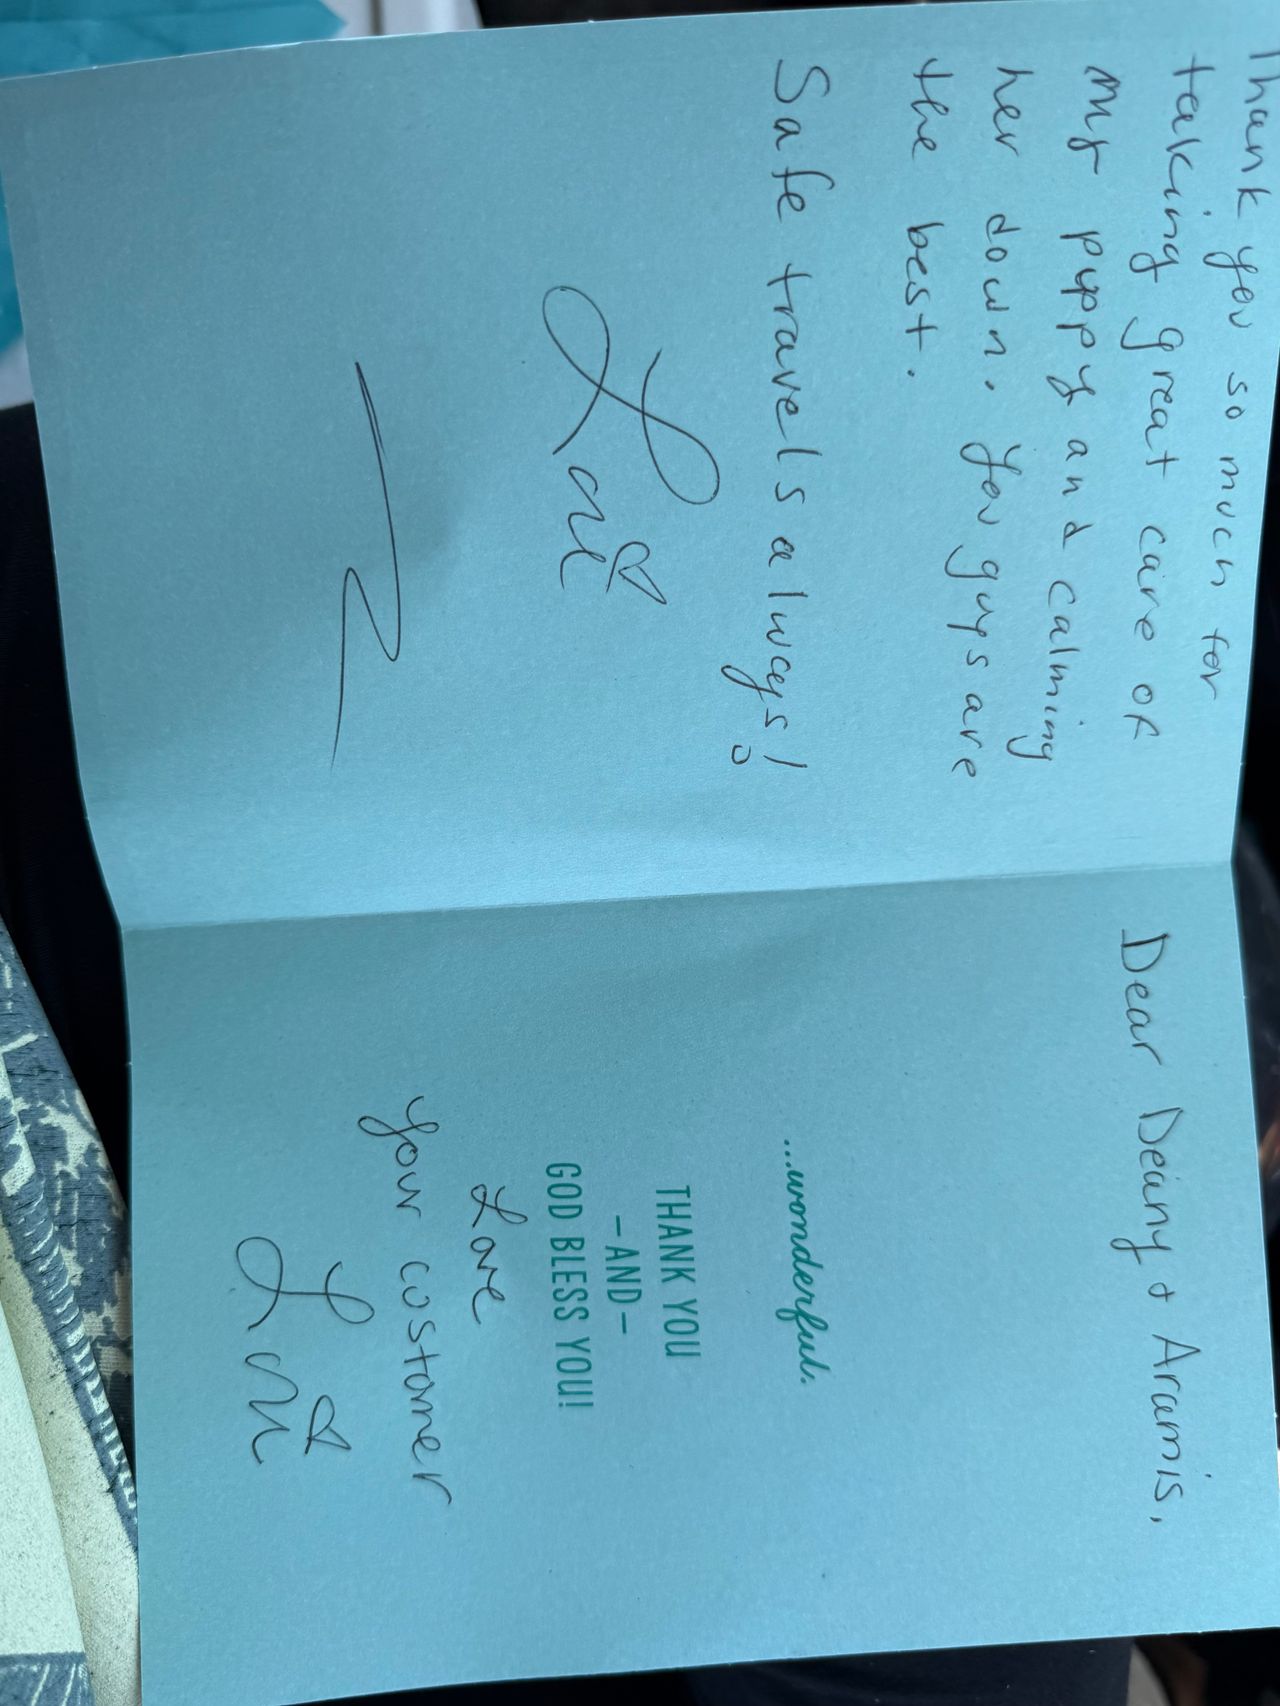 Thank you so much for
taking great care of
my puppy and calming
her down. You guys are
the best.
Safe travels always!
Dear Deany + Aramis,
...wonderful.
THANK YOU
– AND –
GOD BLESS YOU!!
Love
your customer